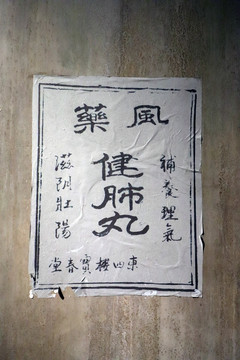 風藥
補養理氣
健肺丸
滋阴壯陽
東四樓寳春堂